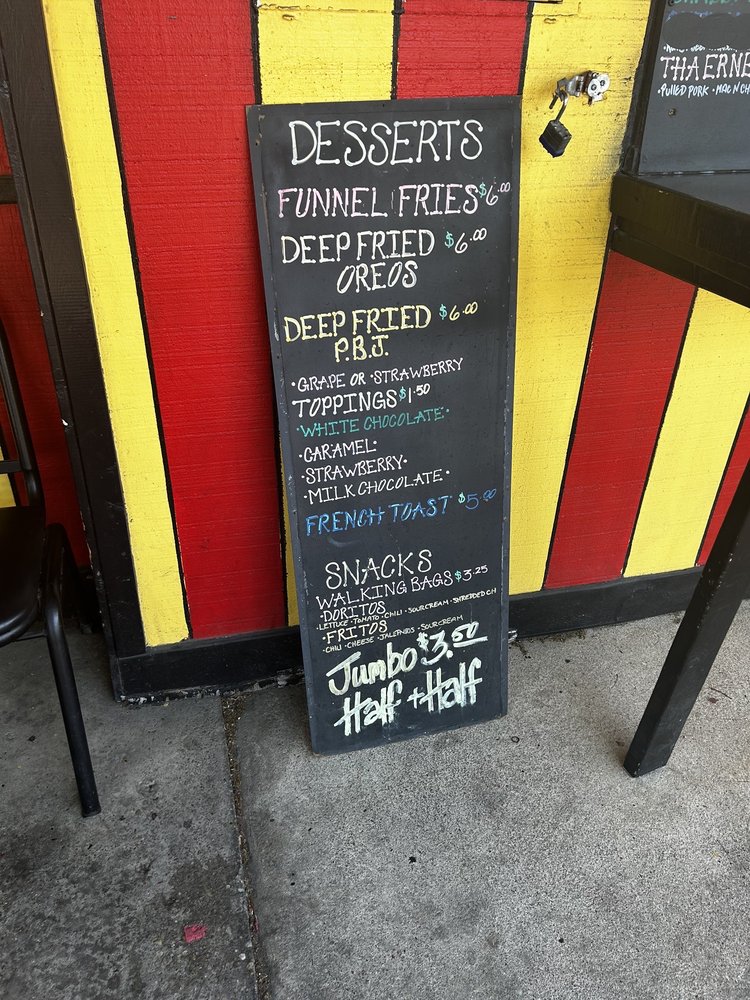 DESSERTS
FUNNEL FRIES $6.00
DEEP FRIED $6.00
OREOS
DEEP FRIED $6.00
P.B.J.
•GRAPE OR •STRAWBERRY
TOPPINGS $1.50
•WHITE CHOCOLATE•
•CARAMEL•
•STRAWBERRY•
•MILK CHOCOLATE•
FRENCH TOAST $5.00
SNACKS
WALKING BAGS $3.25
•DORITOS
•LETTUCE •TOMATO •CHILI •SOURCREAM •SHREDDED CH
•FRITOS
•CHILI •CHEESE •JALEPANOS •SOURCREAM
Jumbo $3.50
Half + Half
THA ERNE
•PULLED PORK •MAC N CH